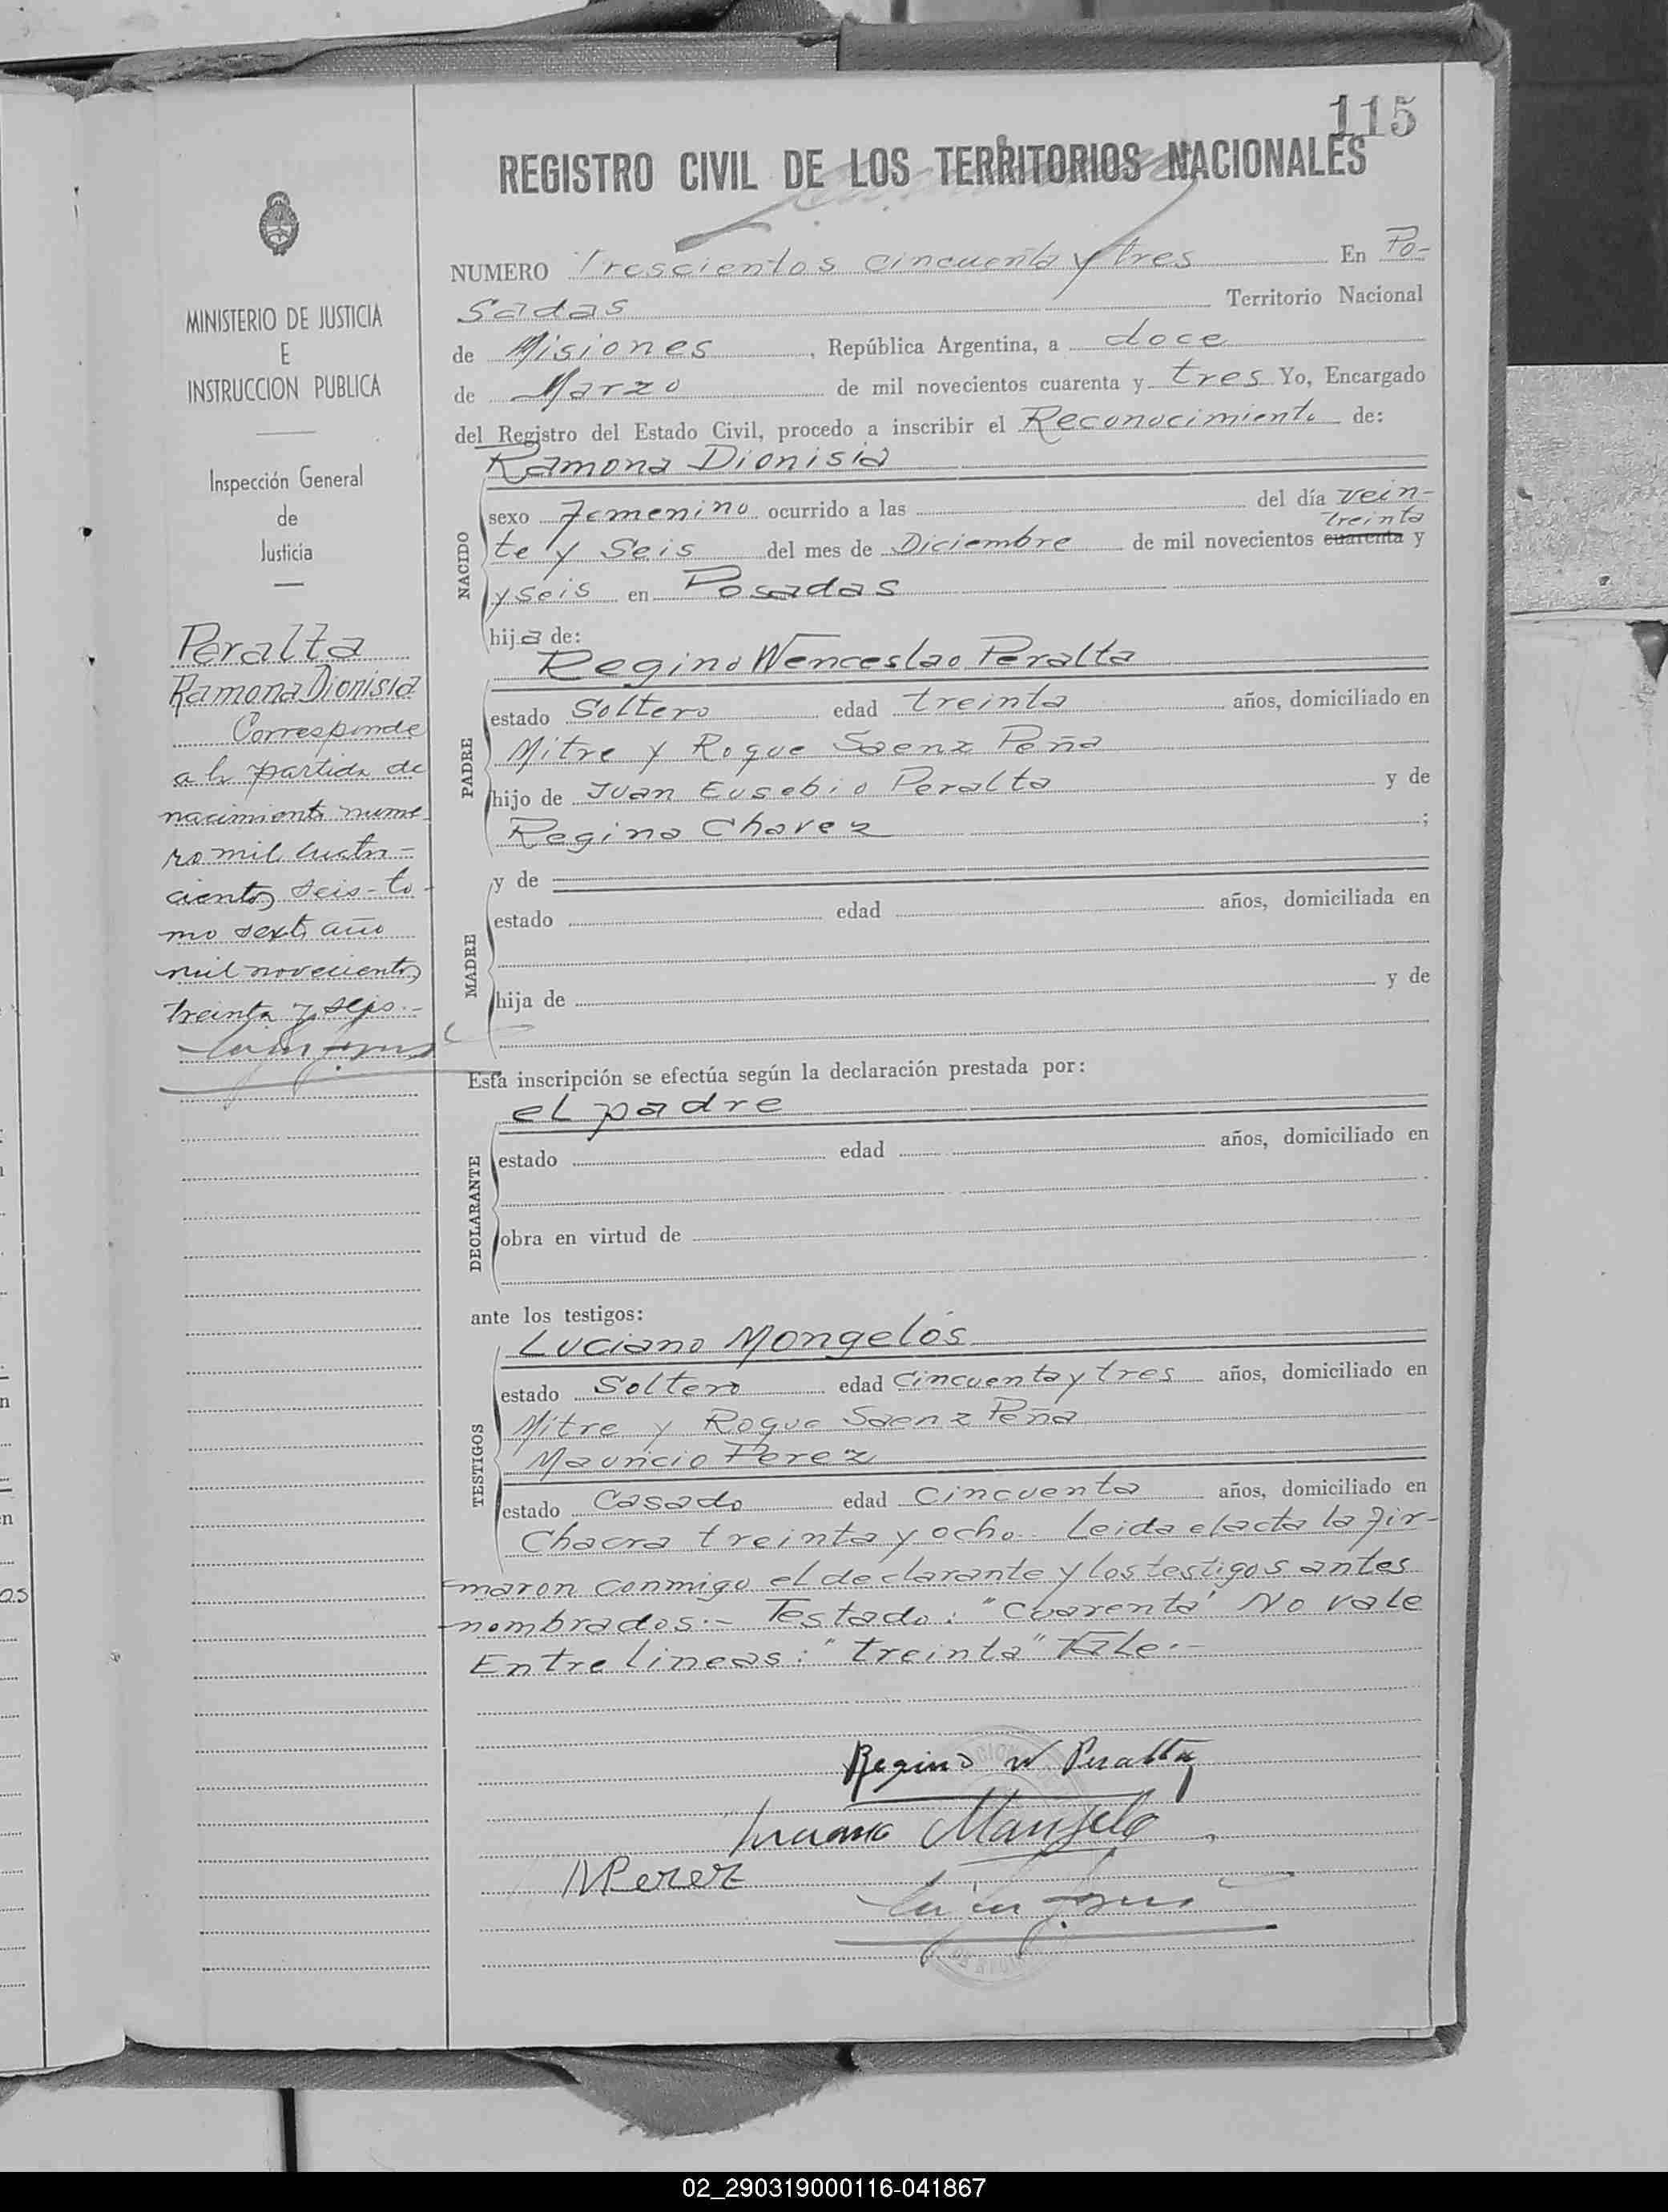 115
REGISTRO CIVIL DE LOS TERRITORIOS NACIONALES
MINISTERIO DE JUSTICIA
E
INSTRUCCION PUBLICA
Inspección General
de
Justicia
Peralta
Ramona Dionisia
Corresponde
a la partida de
nacimiento nume-
ro mil cuatro-
cientos seis - to-
mo sexto año
mil novecientos
treinta y seis.-
NUMERO Trescientos cincuenta y tres En Po-
sadas Territorio Nacional
de Misiones, República Argentina, a doce
de Marzo de mil novecientos cuarenta y tres Yo, Encargado
del Registro del Estado Civil, procedo a inscribir el Reconocimiento de:
Ramona Dionisia
NACIDO
sexo Femenino ocurrido a las del día vein-
treinta
te y Seis del mes de Diciembre de mil novecientos cuarenta y
y seis en Posadas
hija de:
Regino Wenceslao Peralta
PADRE
estado Soltero edad treinta años, domiciliado en
Mitre y Roque Saenz Peña
hijo de Juan Eusebio Peralta y de
Regina Chavez ;
MADRE
y de
estado edad años, domiciliada en
hija de y de
Esta inscripción se efectúa según la declaración prestada por:
el padre
DECLARANTE
estado edad años, domiciliado en
obra en virtud de
ante los testigos:
Luciano Mongelós
TESTIGOS
estado Soltero edad Cincuenta y tres años, domiciliado en
Mitre y Roque Saenz Peña
Mauricio Perez
estado Casado edad Cincuenta años, domiciliado en
Chacra treinta y ocho.- Leida el acta la fir-
maron conmigo el declarante y los testigos antes
nombrados.- Testado: "Cuarenta" No vale
Entrelineas: "treinta" Vale.-
Regino W Peralta
Luciano Mongelo
M Perez
02_290319000116-041867